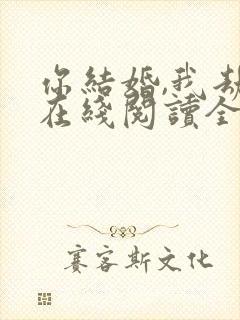 你結婚,我劫
在綫閱讀全
賽客斯文化